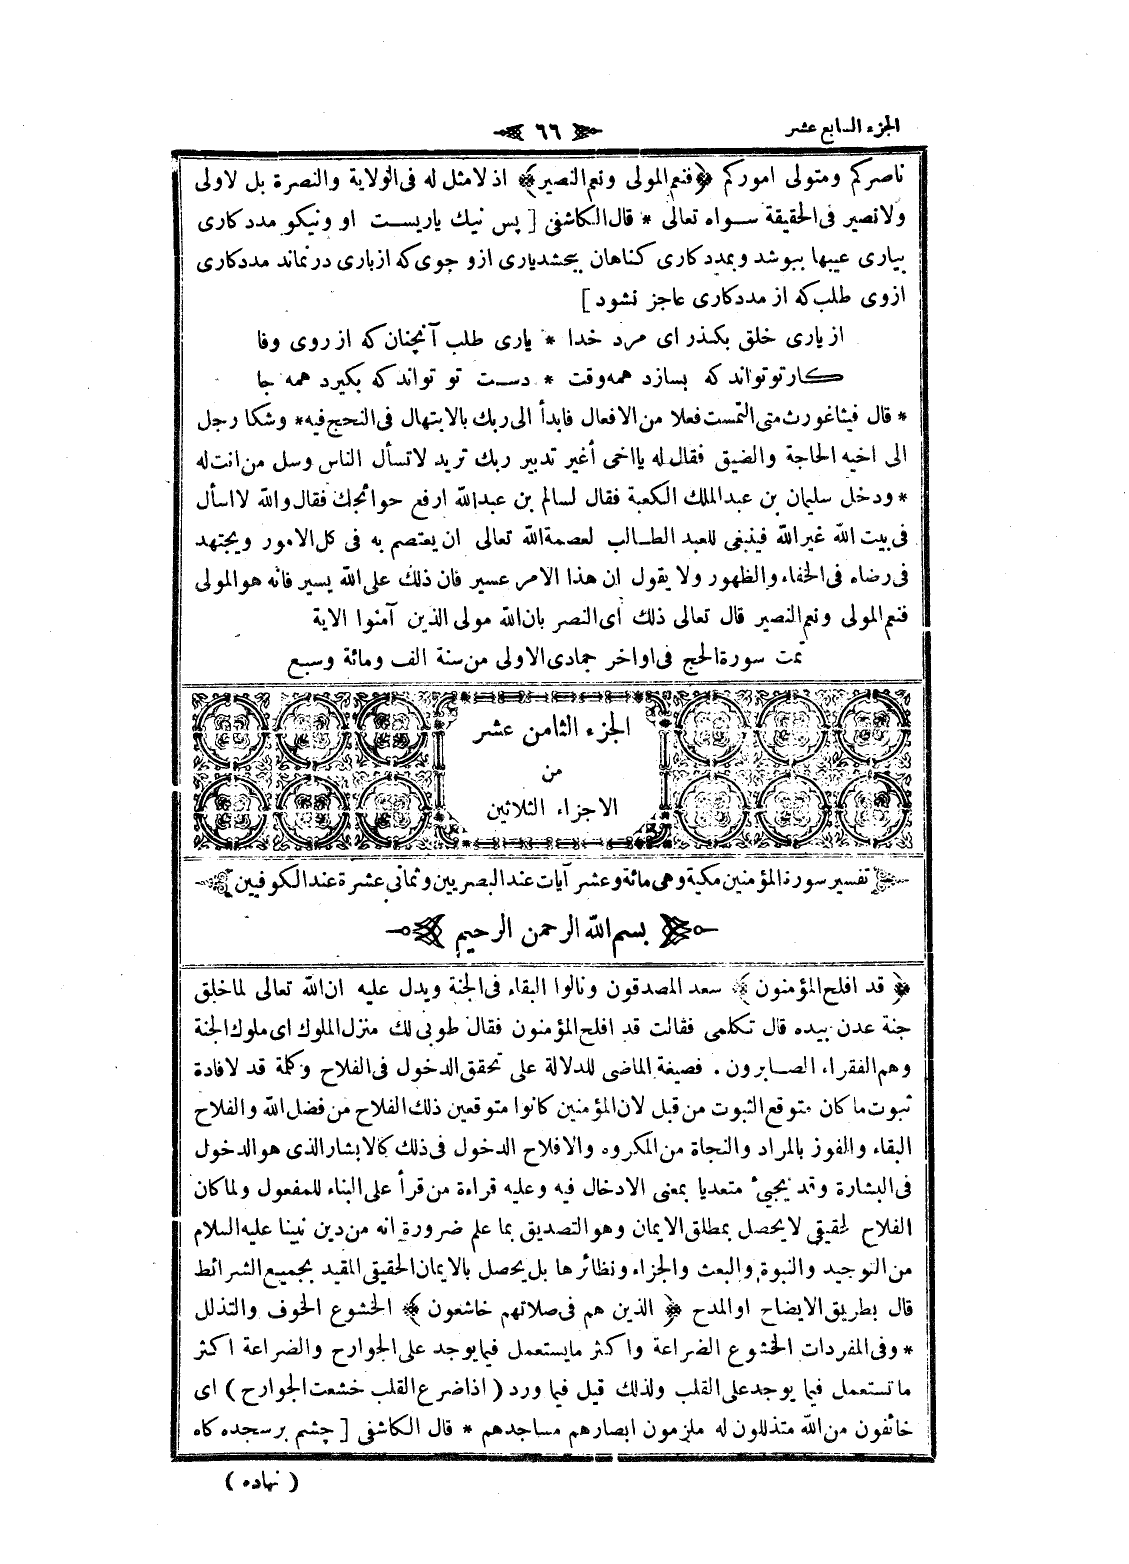 الجزء السابع عشر
٦٦
ناصركم ومتولى اموركم ﴿فنعم المولى ونعم النصير﴾ اذ لا مثل له فى الولاية والنصرة بل لاولى
ولا نصير فى الحقيقة سواه تعالى * قال الكاشفى [ پس نيك ياريست او ونيكو مددكارى
بيارى عيبها بپوشد وبمددكارى كناهان ببخشديارى ازو جوى كه ازيارى درنماند مددكارى
ازوى طلب كه از مددكارى عاجز نشود ]
از يارى خلق بكذر اى مرد خدا * يارى طلب آنچنان كه از روى وفا
كار توتواند كه بسازد همه وقت * دست تو تواند كه بكيرد همه جا
* قال فيثاغورث متى التمست فعلا من الافعال فابدأ الى ربك بالابتهال فى النجح فيه * وشكا رجل
الى اخيه الحاجة والضيق فقال له يا اخى أغير تدبير ربك تريد لا تسأل الناس وسل من انت له
* ودخل سليمان بن عبد الملك الكعبة فقال لسالم بن عبد الله ارفع حوائجك فقال والله لا اسأل
فى بيت الله غير الله فينبغى للعبد الطالب لعصمة الله تعالى ان يعتصم به فى كل الامور ويجتهد
فى رضاه فى الخفاء والظهور ولا يقول ان هذا الامر عسير فان ذلك على الله يسير فانه هو المولى
فنعم المولى ونعم النصير قال تعالى ذلك اى النصر بان الله مولى الذين آمنوا الاية
تمت سورة الحج فى اواخر جمادى الاولى من سنة الف ومائة وسبع
الجزء الثامن عشر
من
الاجزاء الثلاثين
تفسير سورة المؤمنين مكية وهى مائة وعشر آيات عند البصريين وثمانى عشرة عند الكوفيين
بسم الله الرحمن الرحيم
﴿ قد افلح المؤمنون ﴾ سعد المصدقون ونالوا البقاء فى الجنة ويدل عليه ان الله تعالى لما خلق
جنة عدن بيده قال تكلمى فقالت قد افلح المؤمنون فقال طوبى لك منزل الملوك اى ملوك الجنة
وهم الفقراء الصابرون . فصيغة الماضى للدلالة على تحقق الدخول فى الفلاح وكلمة قد لافادة
ثبوت ما كان متوقع الثبوت من قبل لان المؤمنين كانوا متوقعين ذلك الفلاح من فضل الله والفلاح
البقاء والفوز بالمراد والنجاة من المكروه والافلاح الدخول فى ذلك كالابشار الذى هو الدخول
فى البشارة وقد يجيئ متعديا بمعنى الادخال فيه وعليه قراءة من قرأ على البناء للمفعول ولما كان
الفلاح الحقيقى لا يحصل بمطلق الايمان وهو التصديق بما علم ضرورة انه من دين نبينا عليه السلام
من التوحيد والنبوة والبعث والجزاء ونظائرها بل يحصل بالايمان الحقيقى المقيد بجميع الشرائط
قال بطريق الايضاح او المدح ﴿ الذين هم فى صلاتهم خاشعون ﴾ الخشوع الخوف والتذلل
* وفى المفردات الخشوع الضراعة واكثر ما يستعمل فيما يوجد على الجوارح والضراعة اكثر
ما تستعمل فيما يوجد على القلب ولذلك قيل فيما ورد ( اذا ضرع القلب خشعت الجوارح ) اى
خائفون من الله متذللون له ملزمون ابصارهم مساجدهم * قال الكاشفى [ چشم بر سجده كاه
( نهاده )